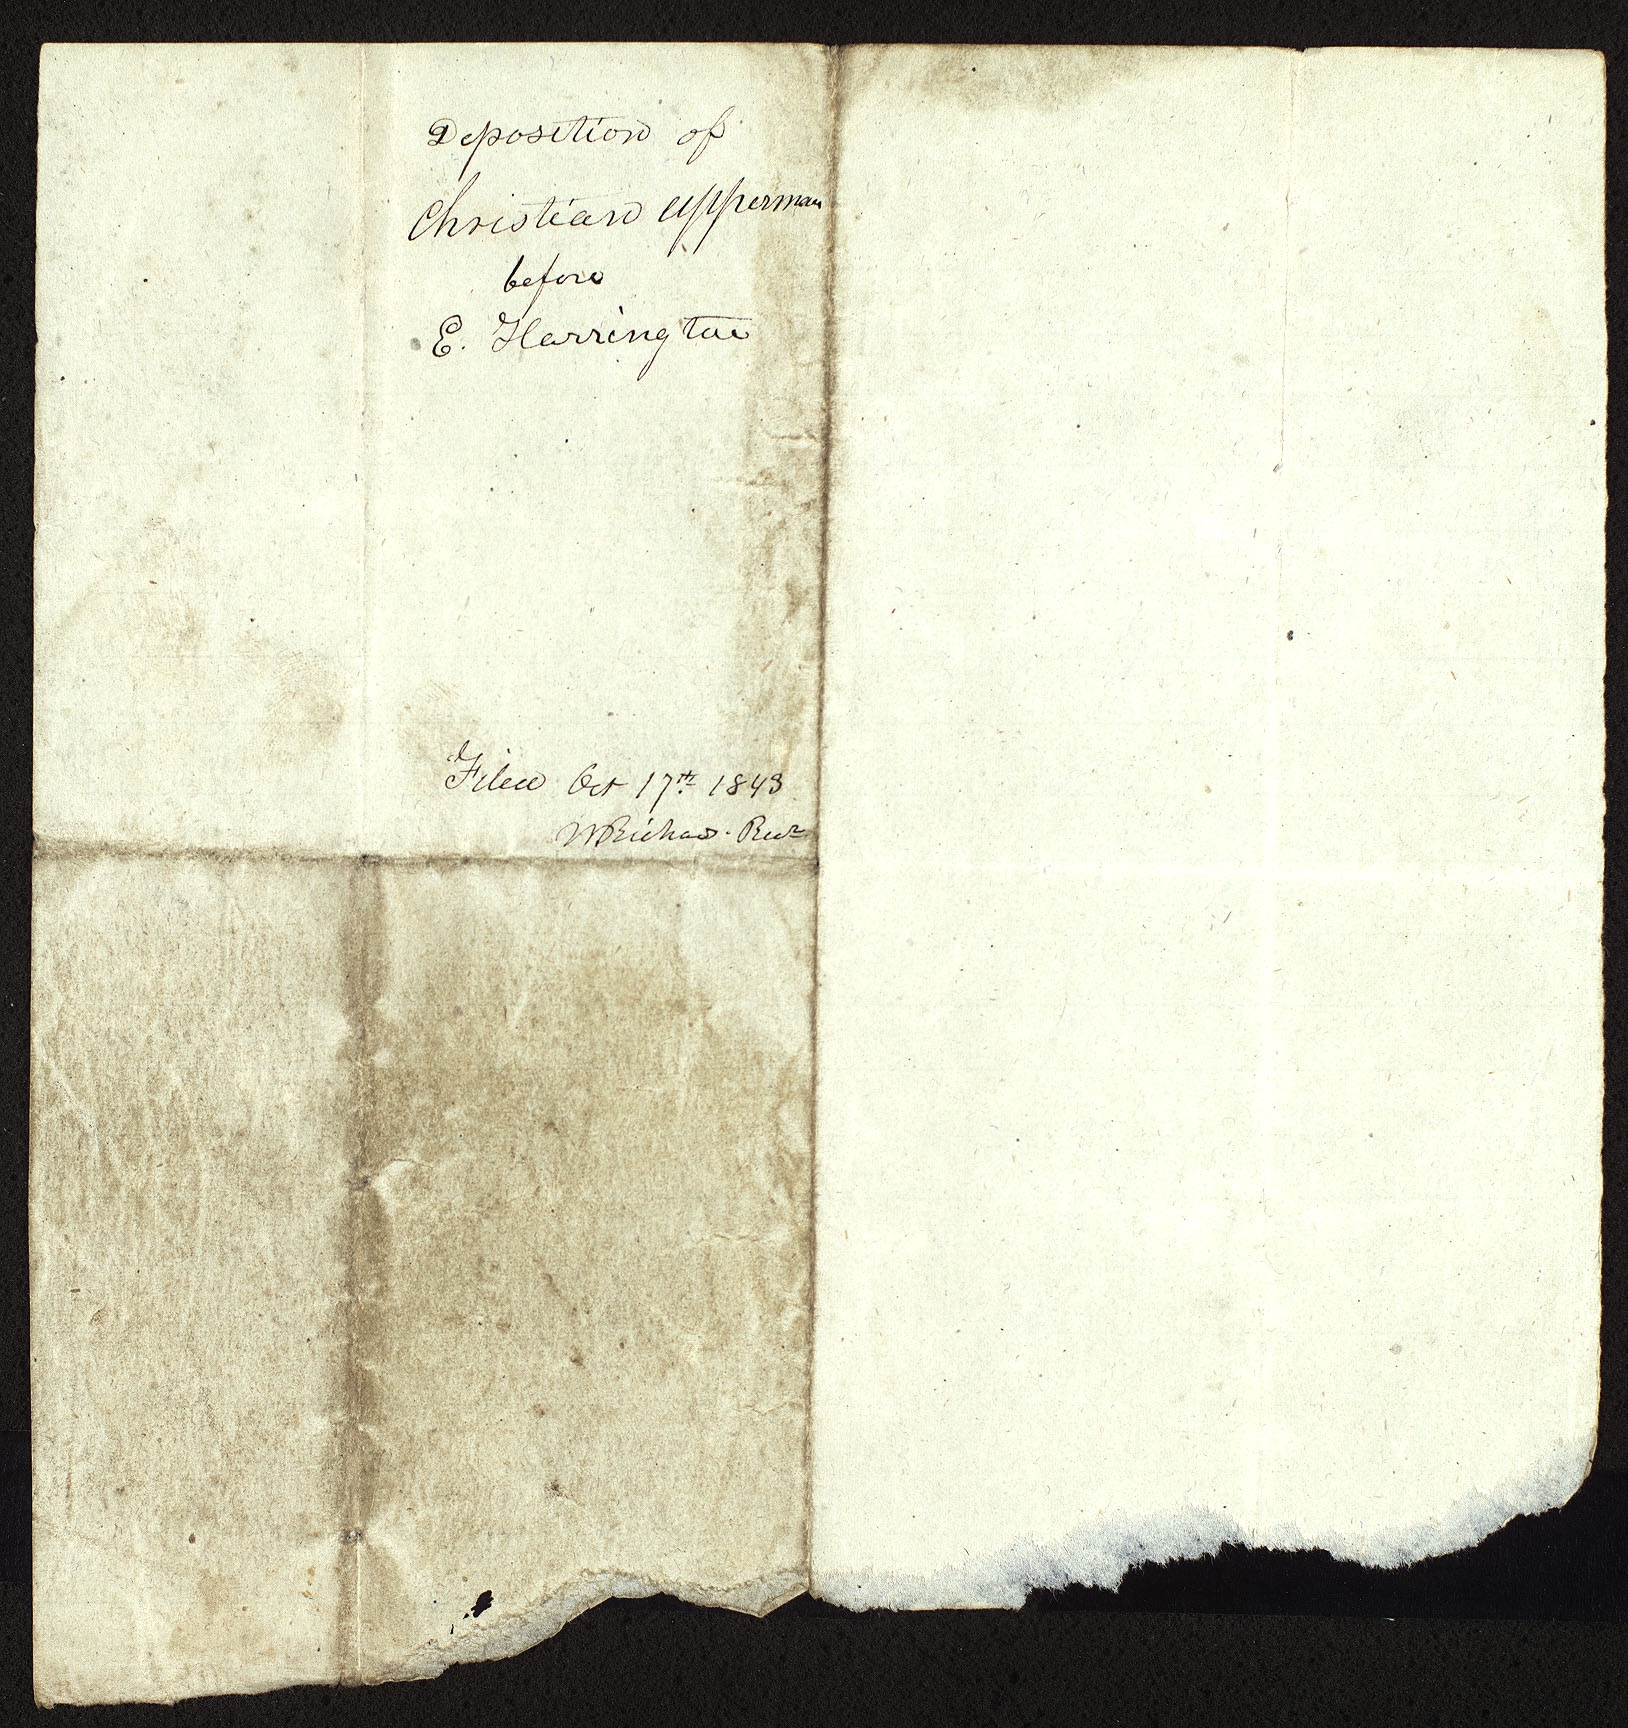 Deposition of
Christian Upperman
before
E. Harrington
Filed Oct 17th 1843
W Richards. Recr